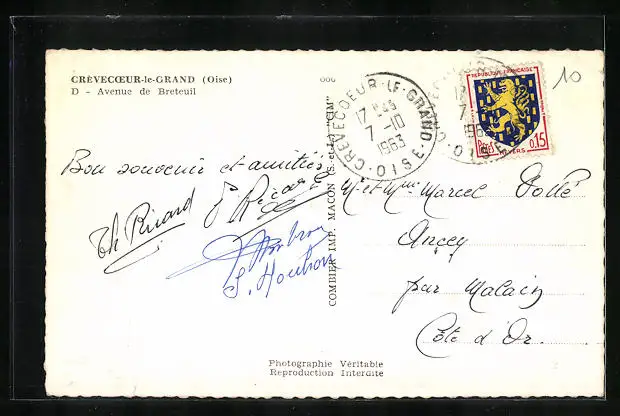 CRÈVECŒUR-le-GRAND (Oise)
D - Avenue de Breteuil
Bon souvenir et amitiés
Th Ricard
P Ricard
S. Houbron
COMBIER IMP. MACON (S.-et-L.) "CIM"
CRÈVECOEUR-LE-GRAND
17 H45
7 -10
1963
OISE
REPUBLIQUE FRANÇAISE
POSTES
0,15
NEVERS
10
M. et Mme Marcel
Ancey
par Malain
Côte d'Or.
Photographie Véritable
Reproduction Interdite